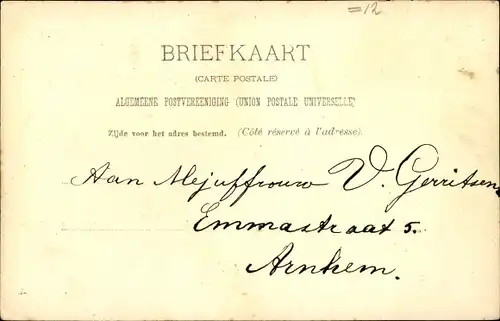 =12
BRIEFKAART
(CARTE POSTALE)
ALGEMEENE POSTVEREENIGING (UNION POSTALE UNIVERSELLE)
Zijde voor het adres bestemd. (Côté réservé à l'adresse).
Aan Mejuffrouw V. Gerritsen
Emmastraat 5.
Arnhem.